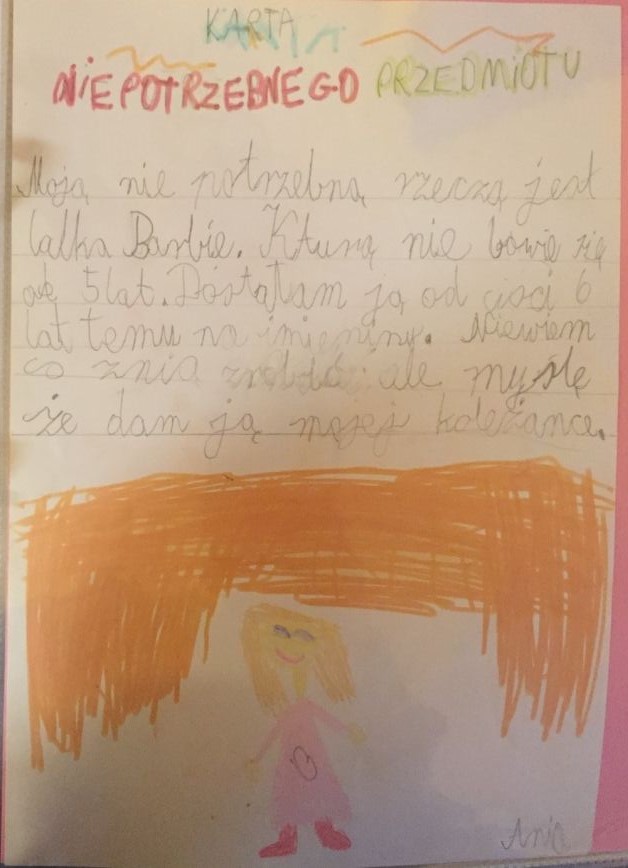 KARTA
NIEPOTRZEBNEGO PRZEDMIOTU
Moją nie potrzebną rzeczą jest
lalka Barbie. Kturą nie bawię się
od 5 lat. Dostałam ją od cioci 6
lat temu na imieniny. Niewiem
co znią zrobić ale myślę
że dam ją mojej koleżance.
Ania